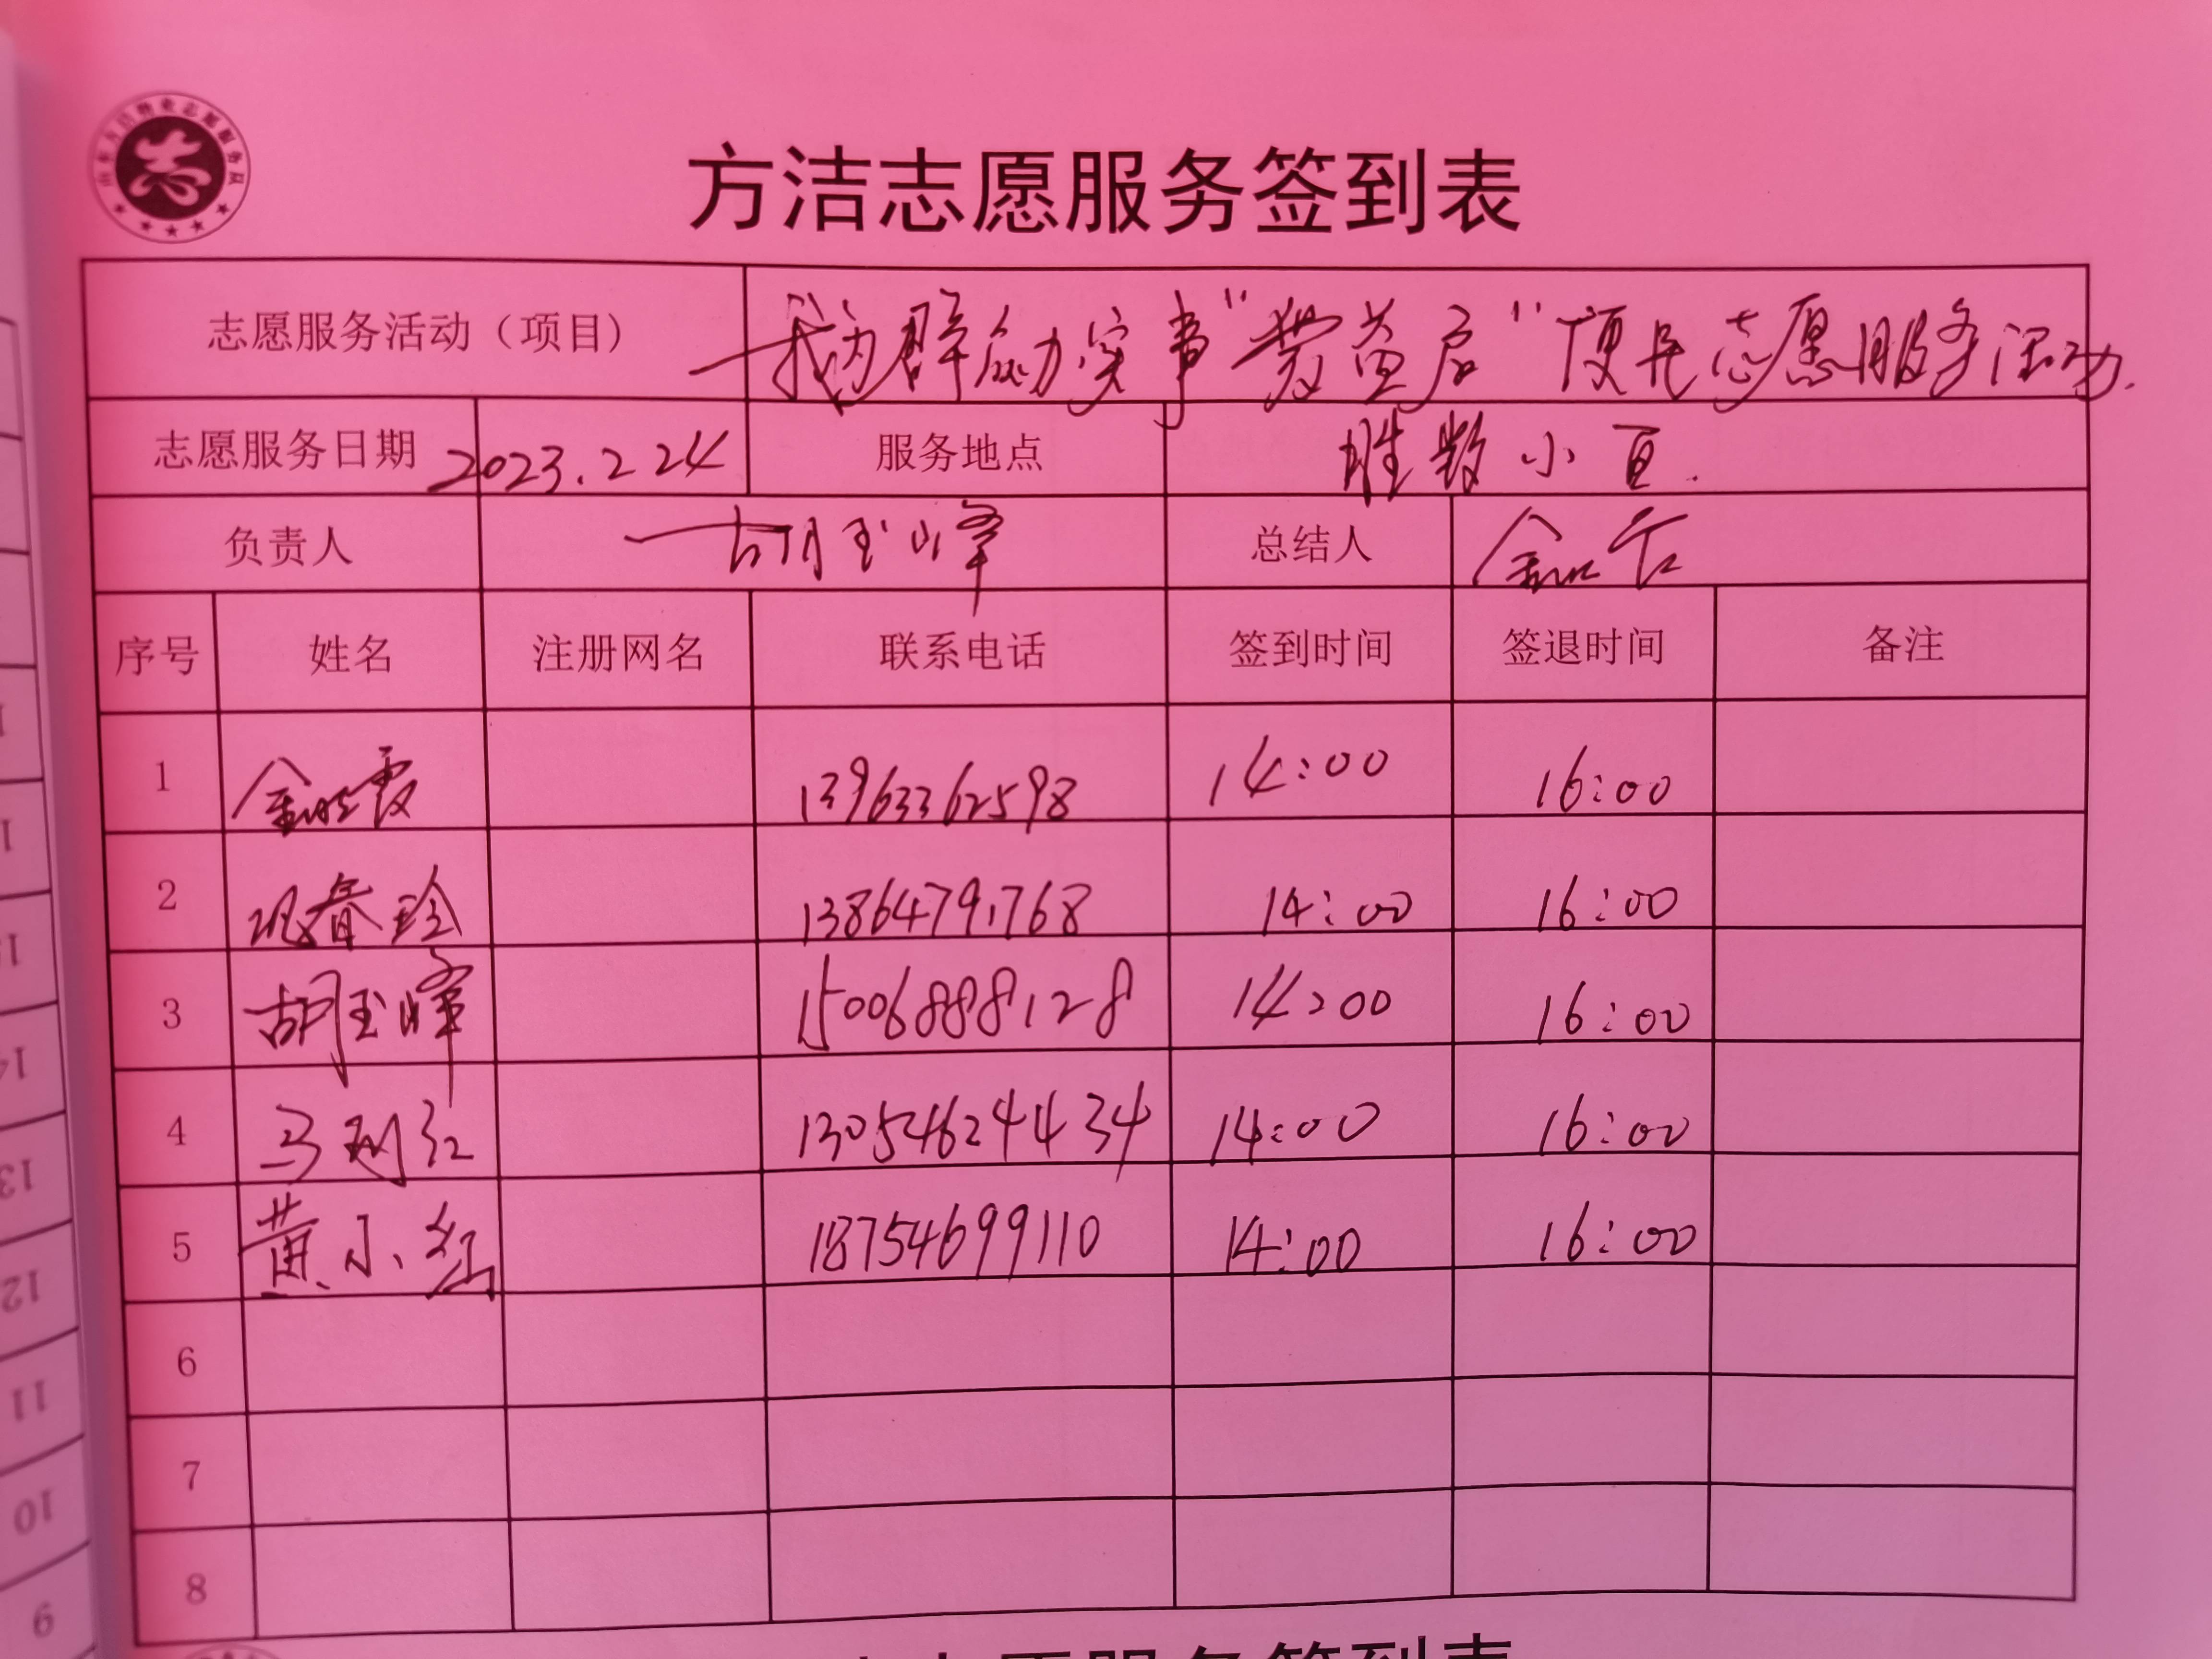 方洁志愿服务签到表
志愿服务活动（项目） 我为群众办实事" 益 "便民志愿服务活动.
志愿服务日期 2023.2 24 服务地点 胜 小
负责人 胡玉峰 总结人
序号 姓名 注册网名 联系电话 签到时间 签退时间 备注
1 金晓霞 13963362598 14:00 16:00
2 春玲 13864791768 14:00 16:00
3 胡玉峰 15006888128 14:00 16:00
4 马 红 13054624434 14:00 16:00
5 黄小红 18754699110 14:00 16:00
6
7
8
14
13
12
11
10
9